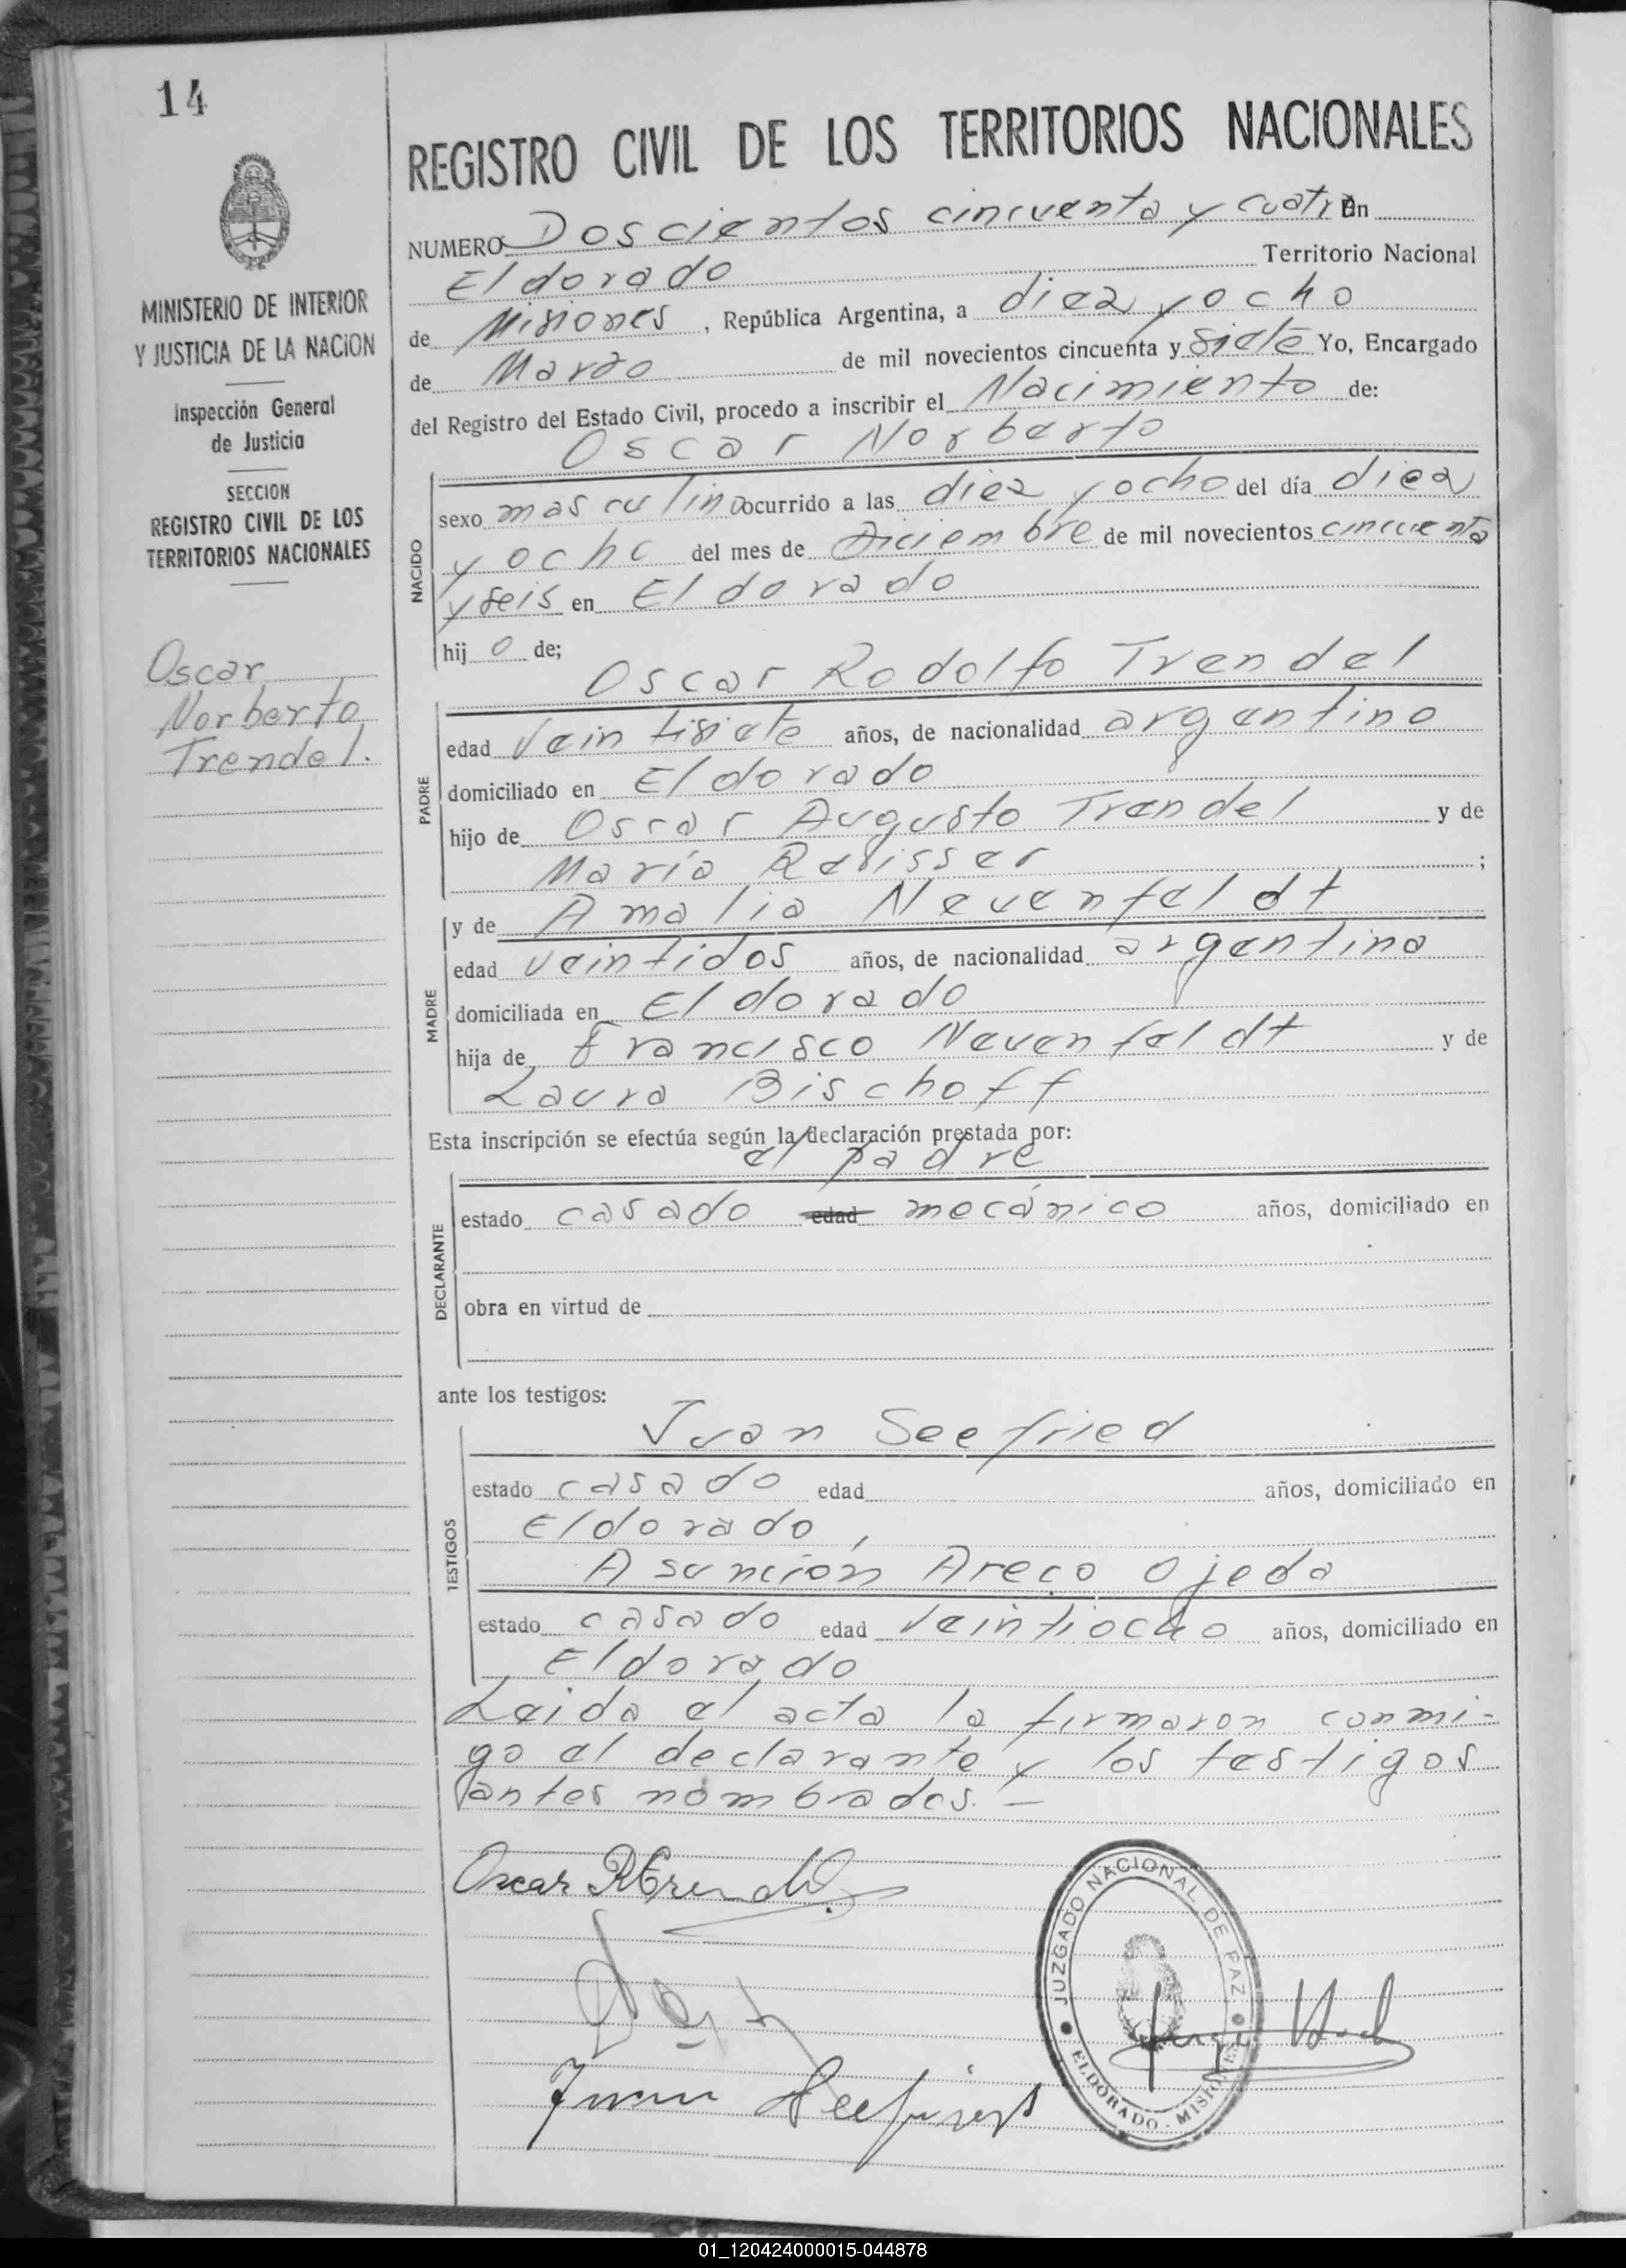 14
REGISTRO CIVIL DE LOS TERRITORIOS NACIONALES
MINISTERIO DE INTERIOR
Y JUSTICIA DE LA NACION
Inspección General
de Justicia
SECCION
REGISTRO CIVIL DE LOS
TERRITORIOS NACIONALES
Oscar
Norberto
Trendel.
NUMERO Doscientos cincuenta y cuatro En
Eldorado Territorio Nacional
de Misiones, República Argentina, a diez y ocho
de Marzo de mil novecientos cincuenta y siete Yo, Encargado
del Registro del Estado Civil, procedo a inscribir el Nacimiento de:
Oscar Norberto
NACIDO
sexo masculino ocurrido a las diez y ocho del día diez
y ocho del mes de Diciembre de mil novecientos cincuenta
y seis en Eldorado
hij o de;
Oscar Rodolfo Trendel
PADRE
edad Veintisiete años, de nacionalidad argentino
domiciliado en Eldorado
hijo de Oscar Augusto Trendel y de
María ;
y de Amalia Neuenfeldt
MADRE
edad veintidos años, de nacionalidad argentina
domiciliada en Eldorado
hija de Francisco Neuenfeldt y de
Laura Bischoff
Esta inscripción se efectúa según la declaración prestada por:
el padre
DECLARANTE
estado casado edad mecánico años, domiciliado en
obra en virtud de
ante los testigos:
Juan Seefried
TESTIGOS
estado casado edad años, domiciliado en
Eldorado,
Asunción Areco Ojeda
estado casado edad veintiocho años, domiciliado en
Eldorado
Leida el acta la firmaron conmi-
go el declarante y los testigos
antes nombrados.-
Oscar R Trendel
Juan Seefried
JUZGADO NACIONAL DE PAZ
ELDORADO - MISIONES
01_120424000015-044878